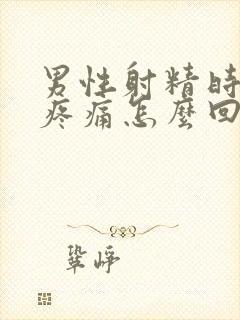 男性射精時
疼痛怎麼回
鞏崢